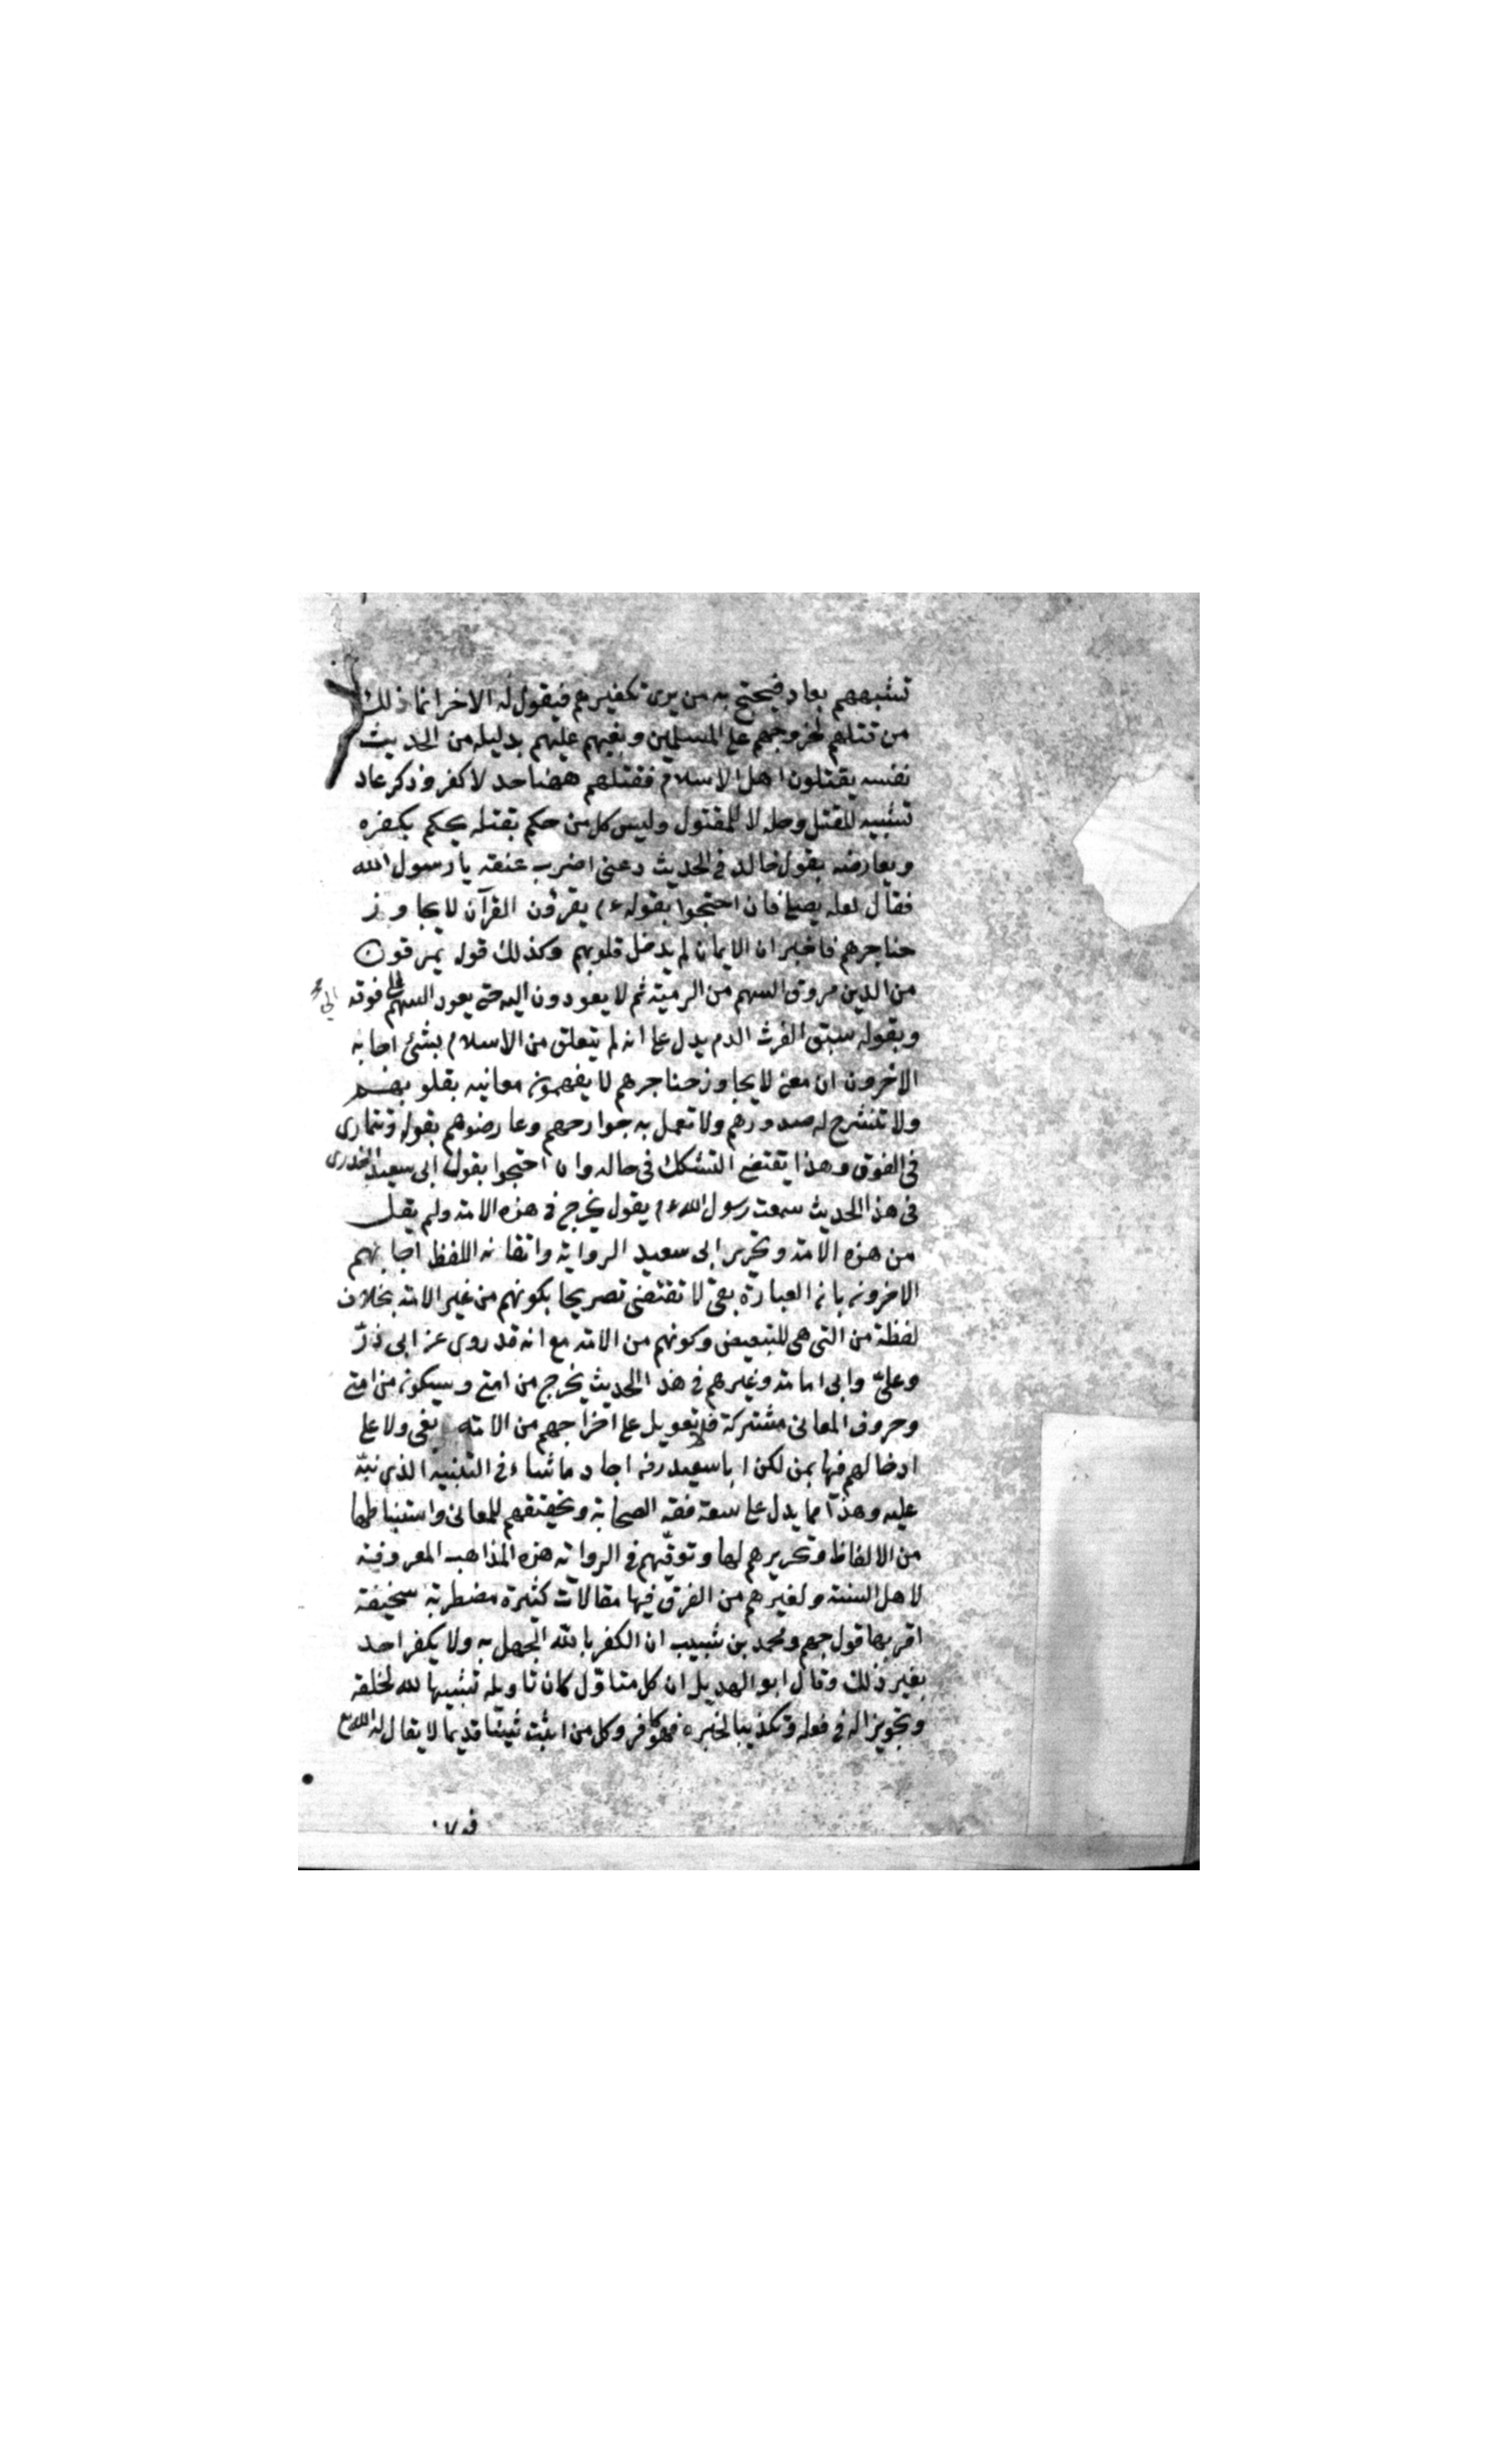 تشبيههم بعاد فيحتج به من يرى تكفيرهم فيقول له الاخر انما ذلك
من قتلهم لخروجهم على المسلمين وبغيهم عليهم بدليله من الحديث
نفسه يقتلون اهل الاسلام فقتلهم ههنا حد لا كفر وذكر عاد
تشبيه للقتل وحله لا للمقتول وليس كل من حكم بقتله يحكم بكفره
ويعارضه بقول خالد في الحديث دعنى اضرب عنقه يا رسول الله
فقال لعله يصلى فان احتجوا بقوله ع م يقرؤن القرآن لا يجاوز
حناجرهم فاخبر ان الايمان لم يدخل قلوبهم وكذلك قوله يمرقون
من الدين مروق السهم من الرمية ثم لا يعودون اليه حتى يعود السهم على فوقه
الى
وبقوله سبق الفرث الدم يدل على انه لم يتعلق من الاسلام بشئ اجابه
الاخرون ان معنى لا يجاوز حناجرهم لا يفهمون معانيه بقلوبهم
ولا تنشرح له صدورهم ولا تعمل به جوارحهم وعارضوهم بقوله وتتمارى
في الفوق وهذا يقتضى التشكك في حاله وان احتجوا بقول ابى سعيد الخدرى
في هذا الحديث سمعت رسول الله ع م يقول يخرج في هذه الامة ولم يقل
من هذه الامة وتحرير ابى سعيد الرواية واتقانه اللفظ اجابهم
الاخرون بان العبارة بفى لا تقتضى تصريحا بكونهم من غير الامة بخلاف
لفظة من التى هى للتبعيض وكونهم من الامة مع انه قد روى عن ابى ذرّ
وعلىّ وابى امامة وغيرهم في هذا الحديث يخرج من امتى وسيكون من امتى
وحروف المعانى مشتركة فلا تعويل على اخراجهم من الامة بفى ولا على
ادخالهم فيها بمن لكن ابا سعيد رضه اجاد ما شاء في التنبيه الذى نبّه
عليه وهذا مما يدل على سعة فقه الصحابة وتحقيقهم للمعانى واستنباطها
من الالفاظ وتحريرهم لها وتوقّيهم في الرواية هذه المذاهب المعروفة
لاهل السنة ولغيرهم من الفرق فيها مقالات كثيرة مضطربة سخيفة
اقربها قول جهم ومحمد بن شبيب ان الكفر بالله الجهل به ولا يكفر احد
بغير ذلك وقال ابو الهذيل ان كل متاوّل كان تاويله تشبيها لله لخلقه
وتجويزا له في فعله وتكذيبا لخبره فهو كافر وكل من اثبت شيئا قديما لا يقال له الله